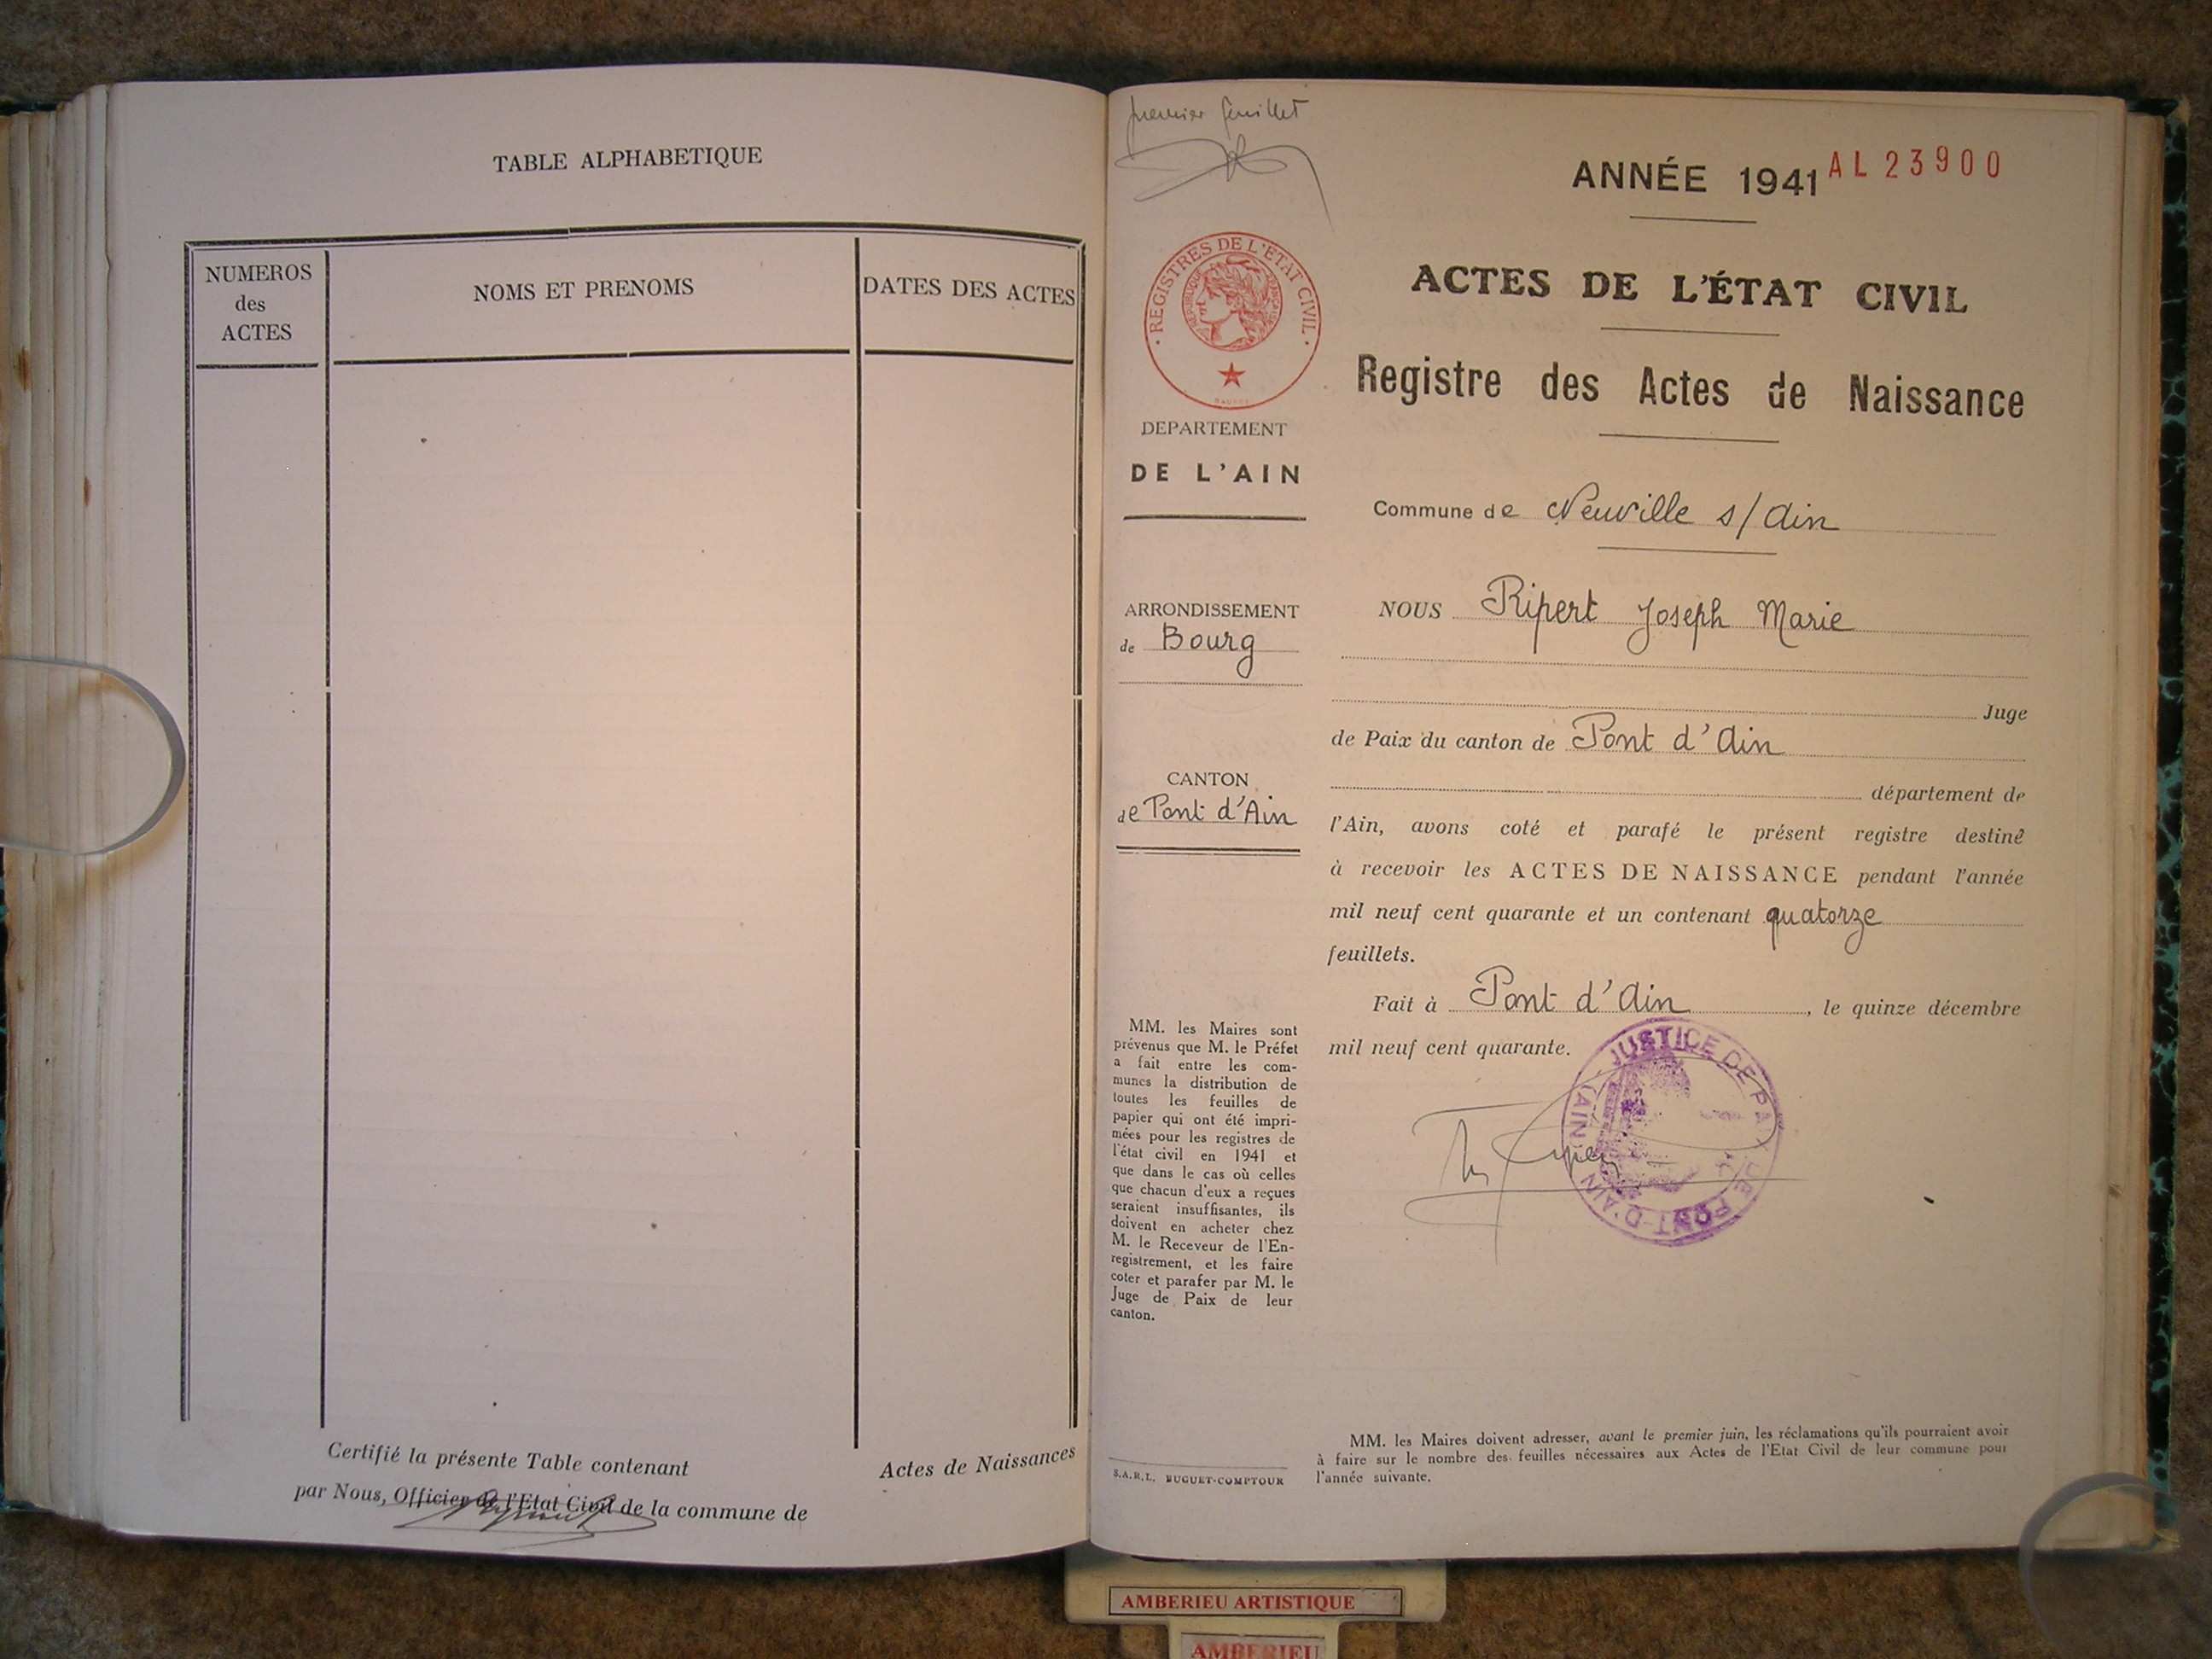 TABLE ALPHABETIQUE
NUMEROS
des
ACTES
NOMS ET PRENOMS
DATES DES ACTES
Certifié la présente Table contenant Actes de Naissances
par Nous, Officier de l'Etat Civil de la commune de
premier feuillet
ANNÉE 1941 AL23900
REGISTRES DE L'ETAT CIVIL
ACTES DE L'ÉTAT CIVIL
Registre des Actes de Naissance
DEPARTEMENT
DE L'AIN
Commune de Neuville s/Ain
ARRONDISSEMENT
de Bourg
NOUS Ripert Joseph Marie
Juge
de Paix du canton de Pont d'Ain
CANTON
de Pont d'Ain
département de
l'Ain, avons coté et parafé le présent registre destiné
à recevoir les ACTES DE NAISSANCE pendant l'année
mil neuf cent quarante et un contenant quatorze
feuillets.
Fait à Pont d'Ain, le quinze décembre
mil neuf cent quarante.
JUSTICE DE PAIX DE PONT-D'AIN (AIN)
MM. les Maires sont
prévenus que M. le Préfet
a fait entre les com-
munes la distribution de
toutes les feuilles de
papier qui ont été impri-
mées pour les registres de
l'état civil en 1941 et
que dans le cas où celles
que chacun d'eux a reçues
seraient insuffisantes, ils
doivent en acheter chez
M. le Receveur de l'En-
registrement, et les faire
coter et parafer par M. le
Juge de Paix de leur
canton.
S.A.R.L. BUGUET-COMPTOUR
MM. les Maires doivent adresser, avant le premier juin, les réclamations qu'ils pourraient avoir
à faire sur le nombre des feuilles nécessaires aux Actes de l'Etat Civil de leur commune pour
l'année suivante.
AMBERIEU ARTISTIQUE
AMBERIEU